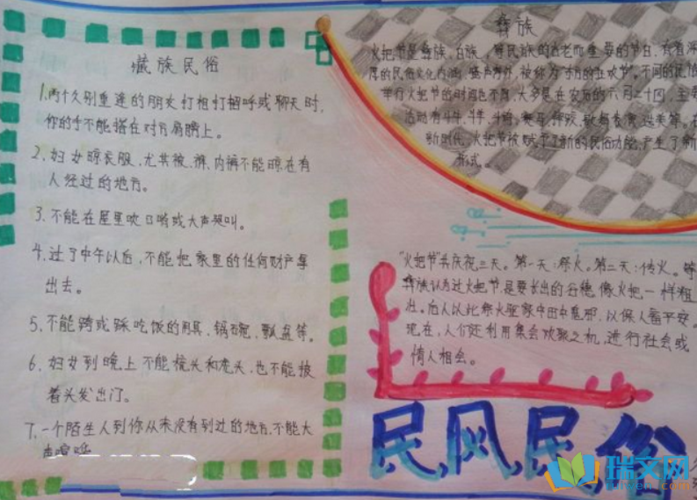 藏族民俗
1.两个久别重逢的朋友打相打招呼或聊天时,
你的手不能搭在对方肩膀上。
2、妇女晾衣服,尤其被、裤,内裤不能晾在有
人经过的地方。
3、不能在屋里吹口哨或大声喧叫。
4、过了中午以后,不能把家里的任何财产拿
出去。
5、不能跨或踩吃饭的用具、锅碗、瓢盆等。
6、妇女到晚上不能梳头和老头,也不能披
着头发出门。
7、一个陌生人到你从来没有到过的地方,不能大
彝族
火把节是彝族、白族、等民族的古老而重要的节日,有着深
厚的民俗文化内涵,
举行火把节的时间也不同,大多是在农历的六月二十四,主要
活动有斗牛、斗羊、斗鸡、赛马、摔跤、
新时代,火把节被赋予了新的民俗功能,产生了新
形式。
"火把节"共庆祝三天。第一天:祭火。第二天:传火。
彝族认为过火把节是要长出的谷穗像火把一样粗
壮。后人以此祭火驱家中田中
现在,人们还利用集会欢聚之机,进行社会或
情人相会。
民风民俗
瑞文网